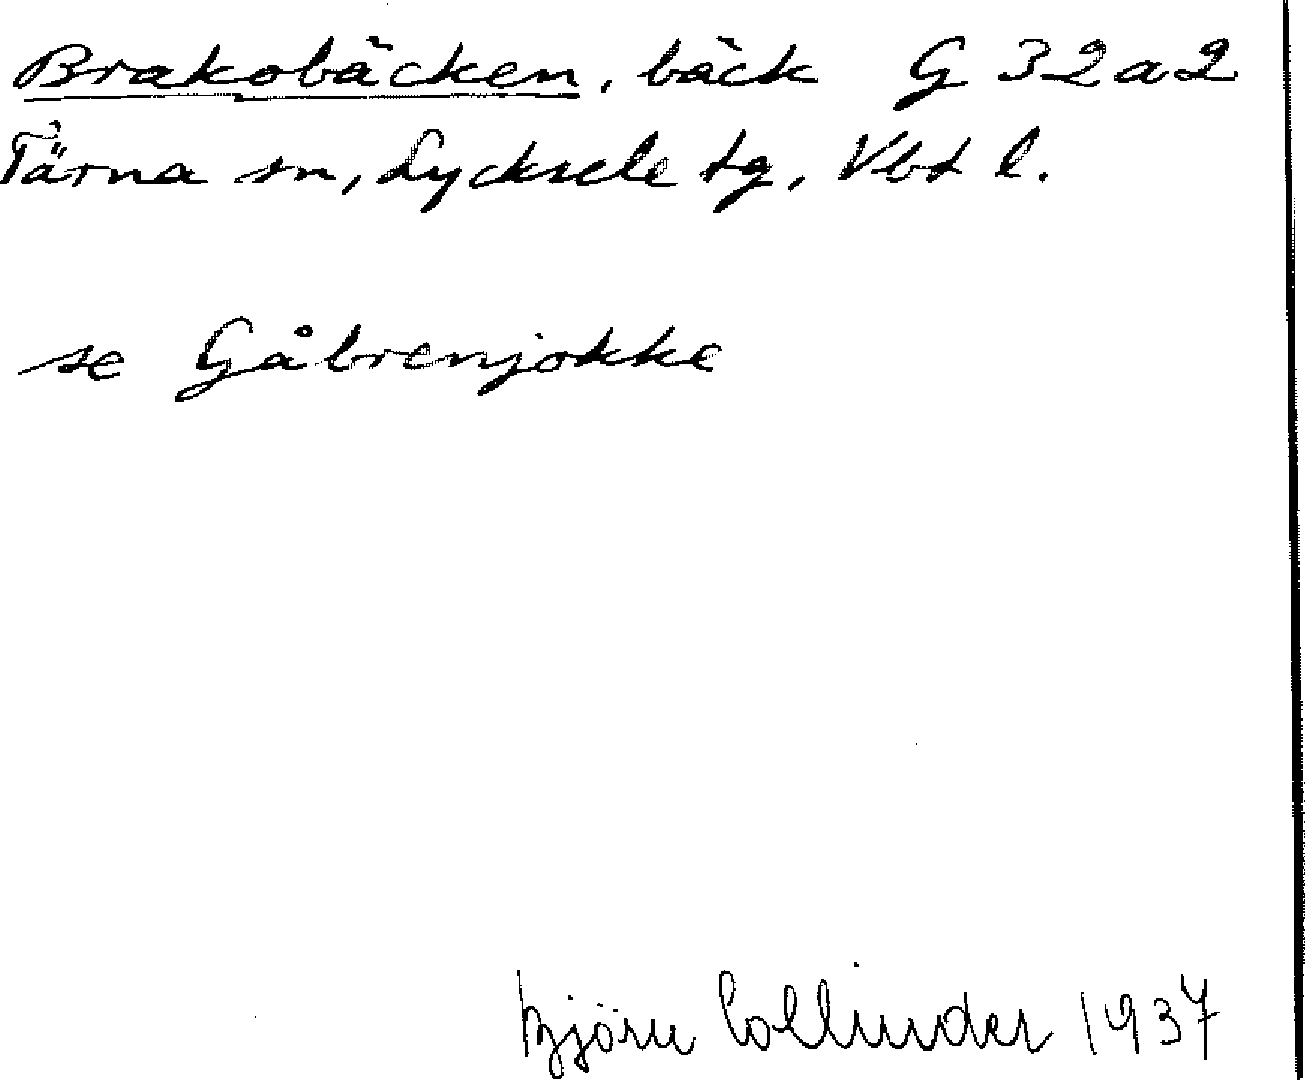 Brakobäcken, bäck G 32a2
Tärna sn, Lycksele tg, Vbt l.
se Gåbrenjokke
Björn Collinder 1937